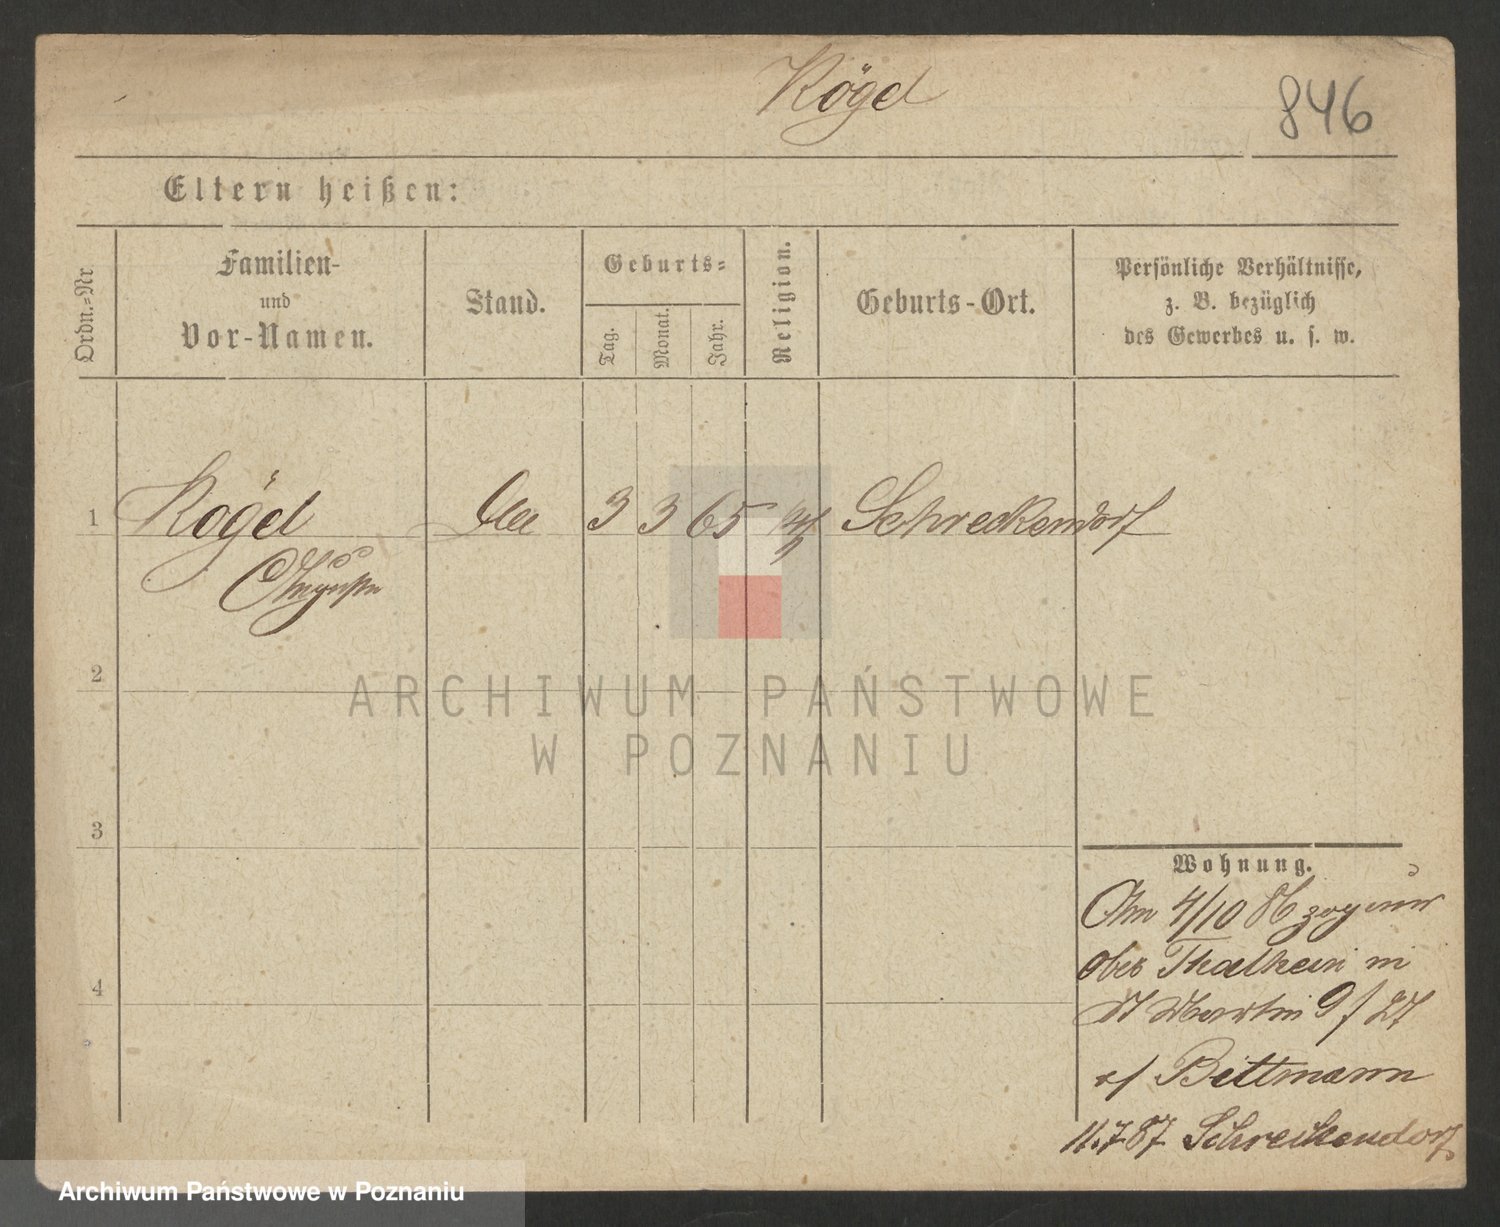 Kögel
846
Eltern heißen:
Ordn.=Nr
Familien-
und
Vor-Namen.
Stand.
Geburts=
Tag.
Monat.
Jahr.
Religion.
Geburts-Ort.
Persönliche Verhältnisse,
z. B. bezüglich
des Gewerbes u. s. w.
1 Kögel 3 3 65 Schreckendorf
Auguste
2
3
4
Wohnung.
Am 4/10 86 zog
Ober Thalheim in
St Martin 9 / 27
Bittmann
11.7 87 Schreckendorf
ARCHIWUM PAŃSTWOWE
W POZNANIU
Archiwum Państwowe w Poznaniu